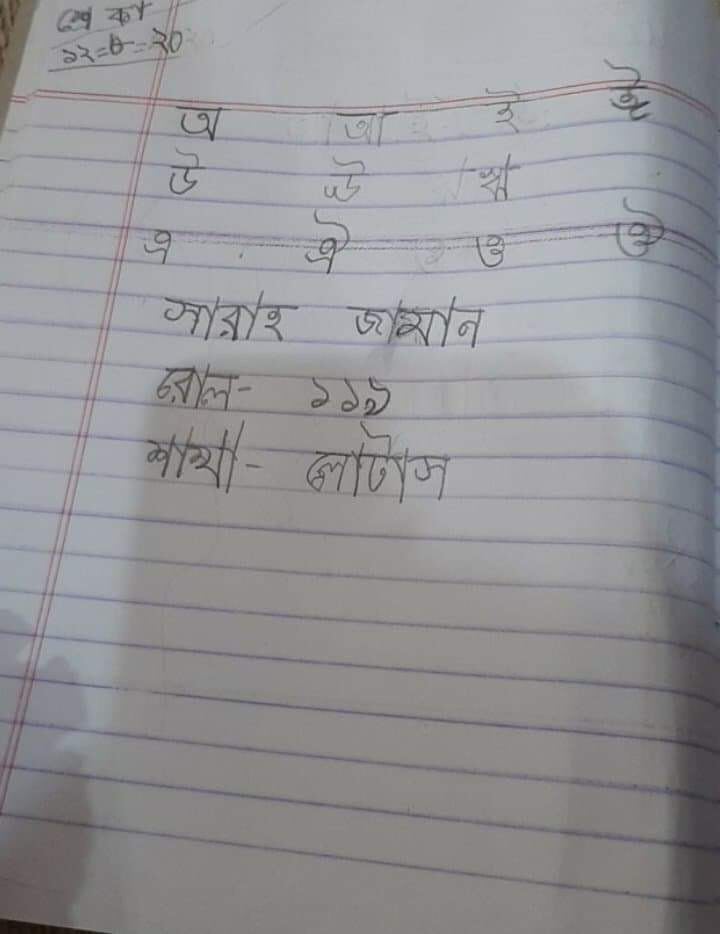 শ্রে কা
১২=৮=২০
অ আ ই ঈ
উ ঊ ঋ
এ ঐ ও ঔ
সারাহ জামান
রোল- ১১৯
শাখা- লোটাস